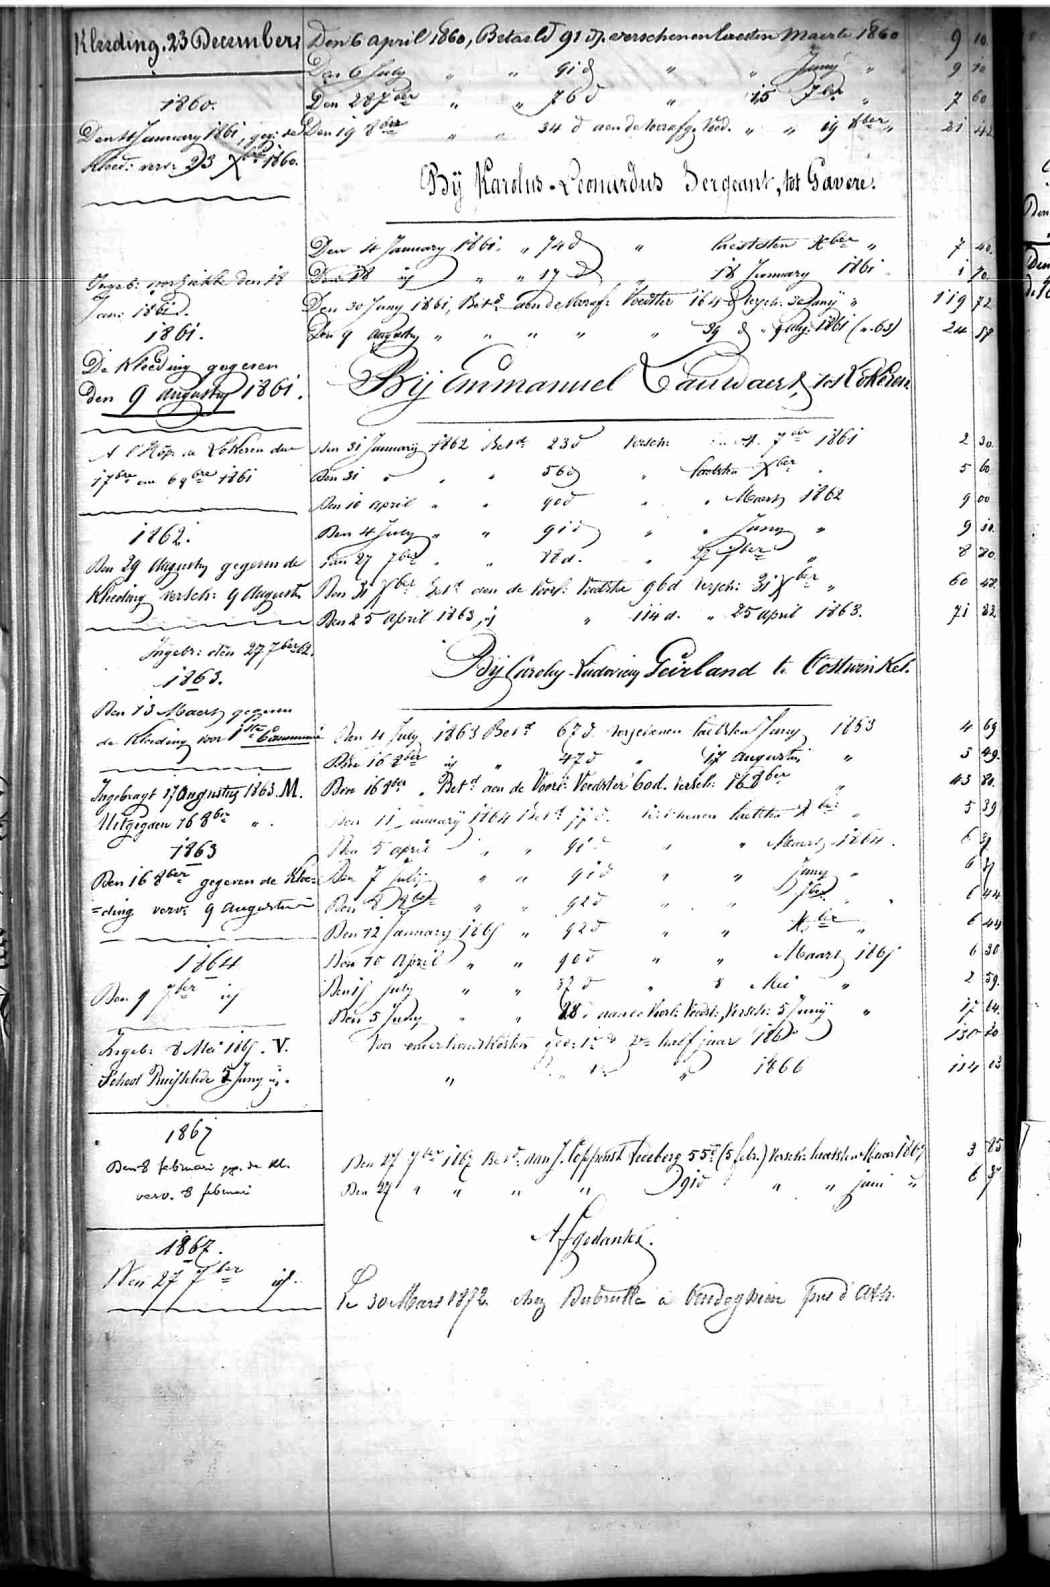 Kleeding. 23 Decembers
1860.
Den 4 January 1861, geg: de
Kleed: verv: 23 Xbre 1860.
Ingeb: den 18
Jan: 1861.
1861.
De Kleeding gegeven
Den 9 augusty 1861.
A l'Hôp. de Lokeren du
17bre au 69bre 1861
1862.
Den 29 Augusty gegeven de
Kleeding versch: 9 Augusts
Ingebr: den 27 7ber 62.
1863.
Den 13 Maert gegeven
de Kleeding voor 1ste Communie
Ingebragt 17 Augusty 1863. M.
Uitgegaen 16 8ber "
1863
Den 16 8ber gegeven de Klee=
=ding verv: 9 Augustus
1864
Den 9 7ber id
Ingeb: 8 Mei 1865. V.
School Ruisselede 5 Juny
1867
Den 8 februari geg. de Kl.
verv. 8 februari
1867.
Den 27 7ber id.
Den 6 april 1860, Betaeld 91 d. verschenen laesten Maerte 1860 9 10
Den 6 July " " 91 d " " Juny " 9 10
Den 28 7ber " " 76 d " 15 7ber " 7 60
Den 19 8ber " " 34 d aen de voorafg. Voed. " " 19 8ber " 21 42
Bÿ Karolus-Leonardus Sergeant, tot Gavere.
Den 4 January 1861. " 74 d " laetsten Xber " 7 40
Den 18 id " " 17 d " 18 January 1861 1 70
Den 30 Juny 1861, Betd aen de Voedster 164 d versch: 30 Junÿ " 119 72
Den 9 augusty " " " " " 39 d " 9 Aug. 1861 24 57
Bij Emmanuel Cauwaert, tot Lokeren
Den 31 January 1862 Betd 23 d versch: 7ber 1861 2 30
Den 31 " " 56 d " laetsten Xber 5 60
Den 10 april " " 90 d " " Maert 1862 9 00
Den 4 July " " 91 d " " Juny " 9 10
Den 27 7ber " " d. " 27 7ber " 8
Den 31 Xber Betd aen de voorf: voedster 96 d versch: 31 Xber " 60 42
Den 25 April 1863, id " 114 d. " 25 april 1863. 71 82
Bÿ Carolus-Ludovicus Geirland te Oostwinkel.
Den 4 July 1863 Betd 67 d. verschenen laetsten Juny 1863 4 69
Den 16 8ber id " 47 d " 17 augustus " 3 29
Den 16 8ber " Betd aen de Voors: Voedster 60 d. versch: 16 8ber " 43 80
Den 11 January 1864 Betd 77 d. verschenen laetsten Xber " 5 39
Den 5 april " " 91 d " " Maert 1864. 6 37
Den 7 July " " 91 d " " Juny " 6 37
Den 8ber " " 92 d " " 7ber " 6 44
Den 12 January 1865 " 92 d " " Xber " 6 44
Den 10 April " " 90 d " " Maart 1865 6 30
Den 15 July " " 37 d " 8 Mei " 2 59
Den 5 Juny " " 28 d aan de Voorl: Voedst: Versch: 5 Junÿ " 17 64
Voor onderhoudskosten half jaar 1865 130 20
" " 1866 114 13
Den 27 7ber 1867 Betd aan J. Ledeberg 55 d (5 febr.) versch: laetsten Maart 1867 3 85
Den 27 " " " " 91 d " " juni " 6 37
Afgedankt.
Le 30 Mars 1872. chez Dubrulle à près d'Ath.